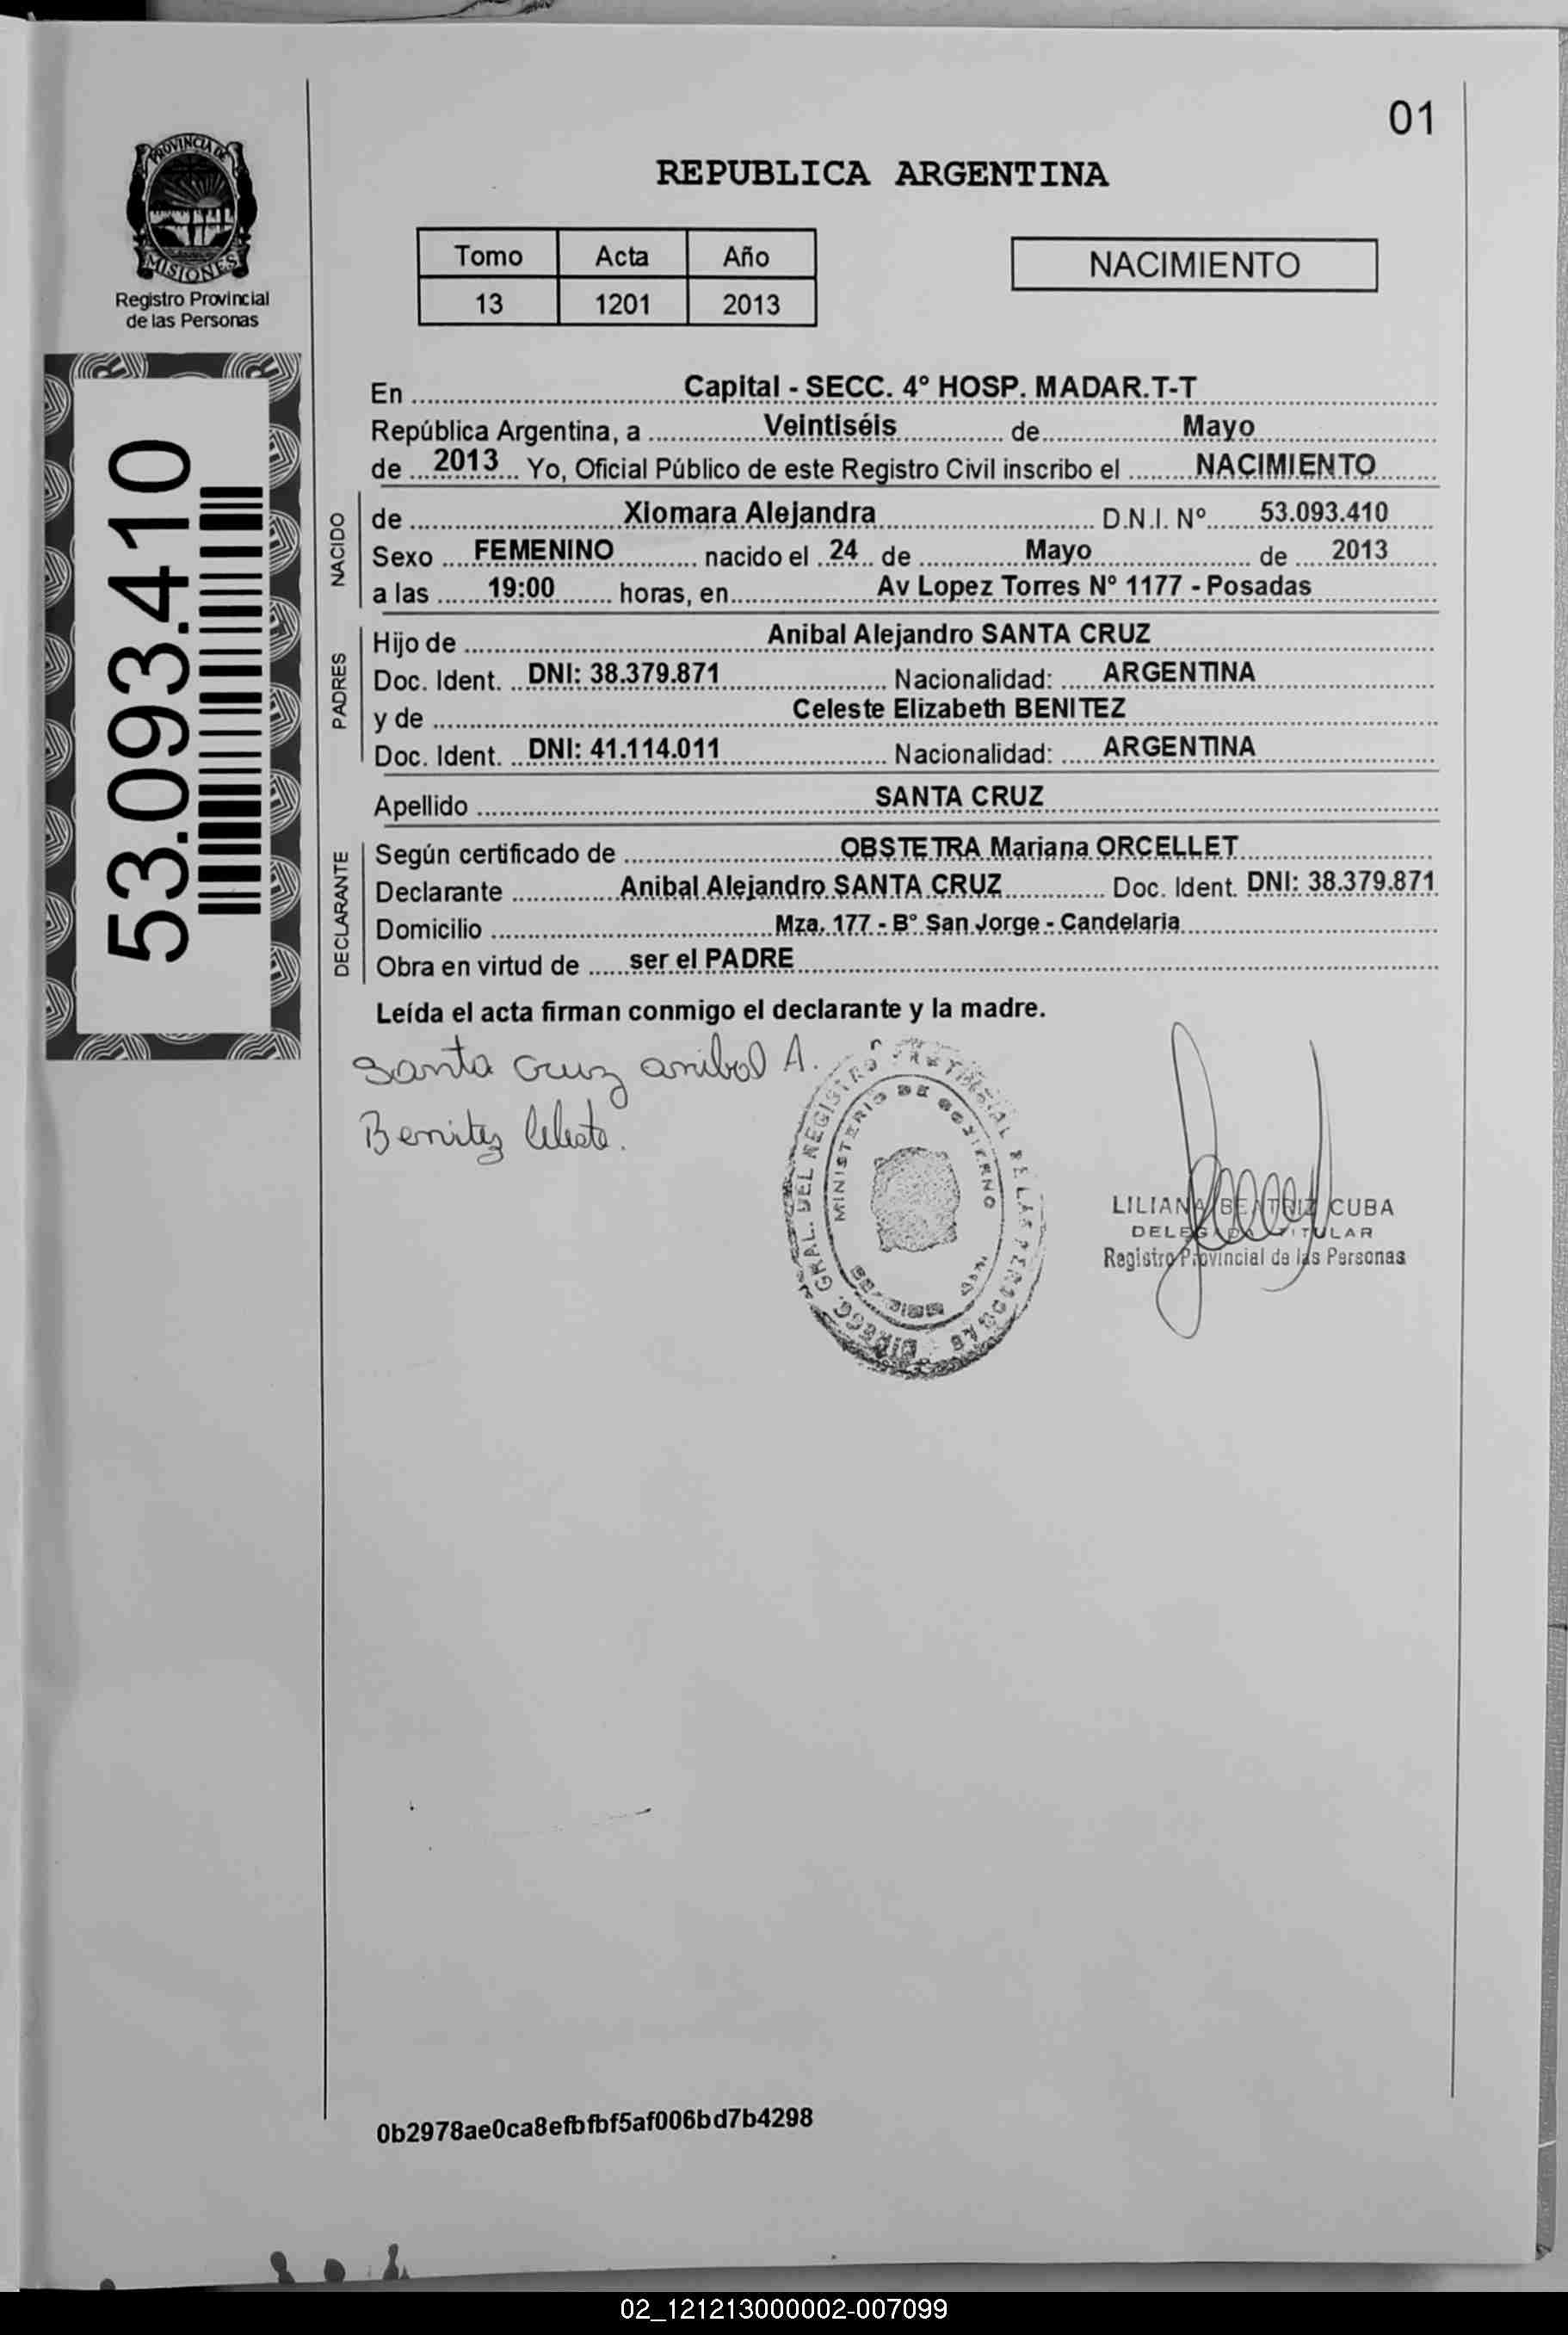 01
PROVINCIA DE
MISIONES
Registro Provincial
de las Personas
53.093.410
REPUBLICA ARGENTINA
Tomo Acta Año
13 1201 2013
NACIMIENTO
En Capital - SECC. 4º HOSP. MADAR.T-T
República Argentina, a Veintiséis de Mayo
de 2013 Yo, Oficial Público de este Registro Civil inscribo el NACIMIENTO
NACIDO
de Xiomara Alejandra D.N.I. Nº 53.093.410
Sexo FEMENINO nacido el 24 de Mayo de 2013
a las 19:00 horas, en Av Lopez Torres Nº 1177 - Posadas
PADRES
Hijo de Anibal Alejandro SANTA CRUZ
Doc. Ident. DNI: 38.379.871 Nacionalidad: ARGENTINA
y de Celeste Elizabeth BENITEZ
Doc. Ident. DNI: 41.114.011 Nacionalidad: ARGENTINA
Apellido SANTA CRUZ
DECLARANTE
Según certificado de OBSTETRA Mariana ORCELLET
Declarante Anibal Alejandro SANTA CRUZ Doc. Ident. DNI: 38.379.871
Domicilio Mza. 177 - Bº San Jorge - Candelaria
Obra en virtud de ser el PADRE
Leída el acta firman conmigo el declarante y la madre.
Santa Cruz anibal A.
Benitez Celeste.
DIRECC. GRAL. DEL REGISTRO PROVINCIAL DE LAS PERSONAS
MINISTERIO DE GOBIERNO
LILIANA BEATRIZ CUBA
DELEGADA TITULAR
Registro Provincial de las Personas
0b2978ae0ca8efbfbf5af006bd7b4298
02_121213000002-007099